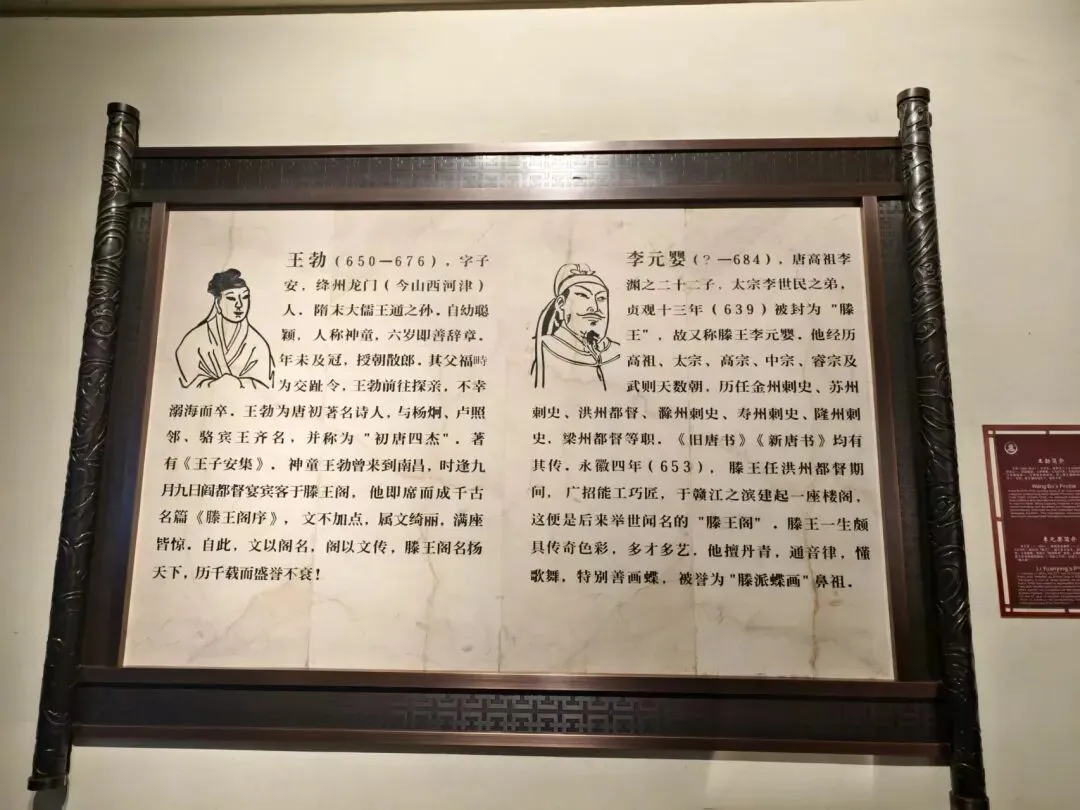 王勃（650—676），字子
安，绛州龙门（今山西河津）
人．隋末大儒王通之孙．自幼聪
颖，人称神童，六岁即善辞章．
年未及冠，授朝散郎．其父福畤
为交趾令，王勃前往探亲，不幸
溺海而卒．王勃为唐初著名诗人，与杨炯、卢照
邻、骆宾王齐名，并称为"初唐四杰"．著
有《王子安集》．神童王勃曾来到南昌，时逢九
月九日阎都督宴宾客于滕王阁，他即席而成千古
名篇《滕王阁序》，文不加点，属文绮丽，满座
皆惊．自此，文以阁名，阁以文传，滕王阁名扬
天下，历千载而盛誉不衰！
李元婴（？—684），唐高祖李
渊之二十二子．太宗李世民之弟，
贞观十三年（639）被封为"滕
王"，故又称滕王李元婴．他经历
高祖、太宗、高宗、中宗、睿宗及
武则天数朝．历任金州刺史、苏州
刺史、洪州都督、滁州刺史、寿州刺史、隆州刺
史，梁州都督等职．《旧唐书》《新唐书》均有
其传．永徽四年（653），滕王任洪州都督期
间，广招能工巧匠，于赣江之滨建起一座楼阁，
这便是后来举世闻名的"滕王阁"．滕王一生颇
具传奇色彩，多才多艺．他擅丹青，通音律，懂
歌舞，特别善画蝶，被誉为"滕派蝶画"鼻祖．
王勃简介
Wang Bo's Profile
李元婴简介